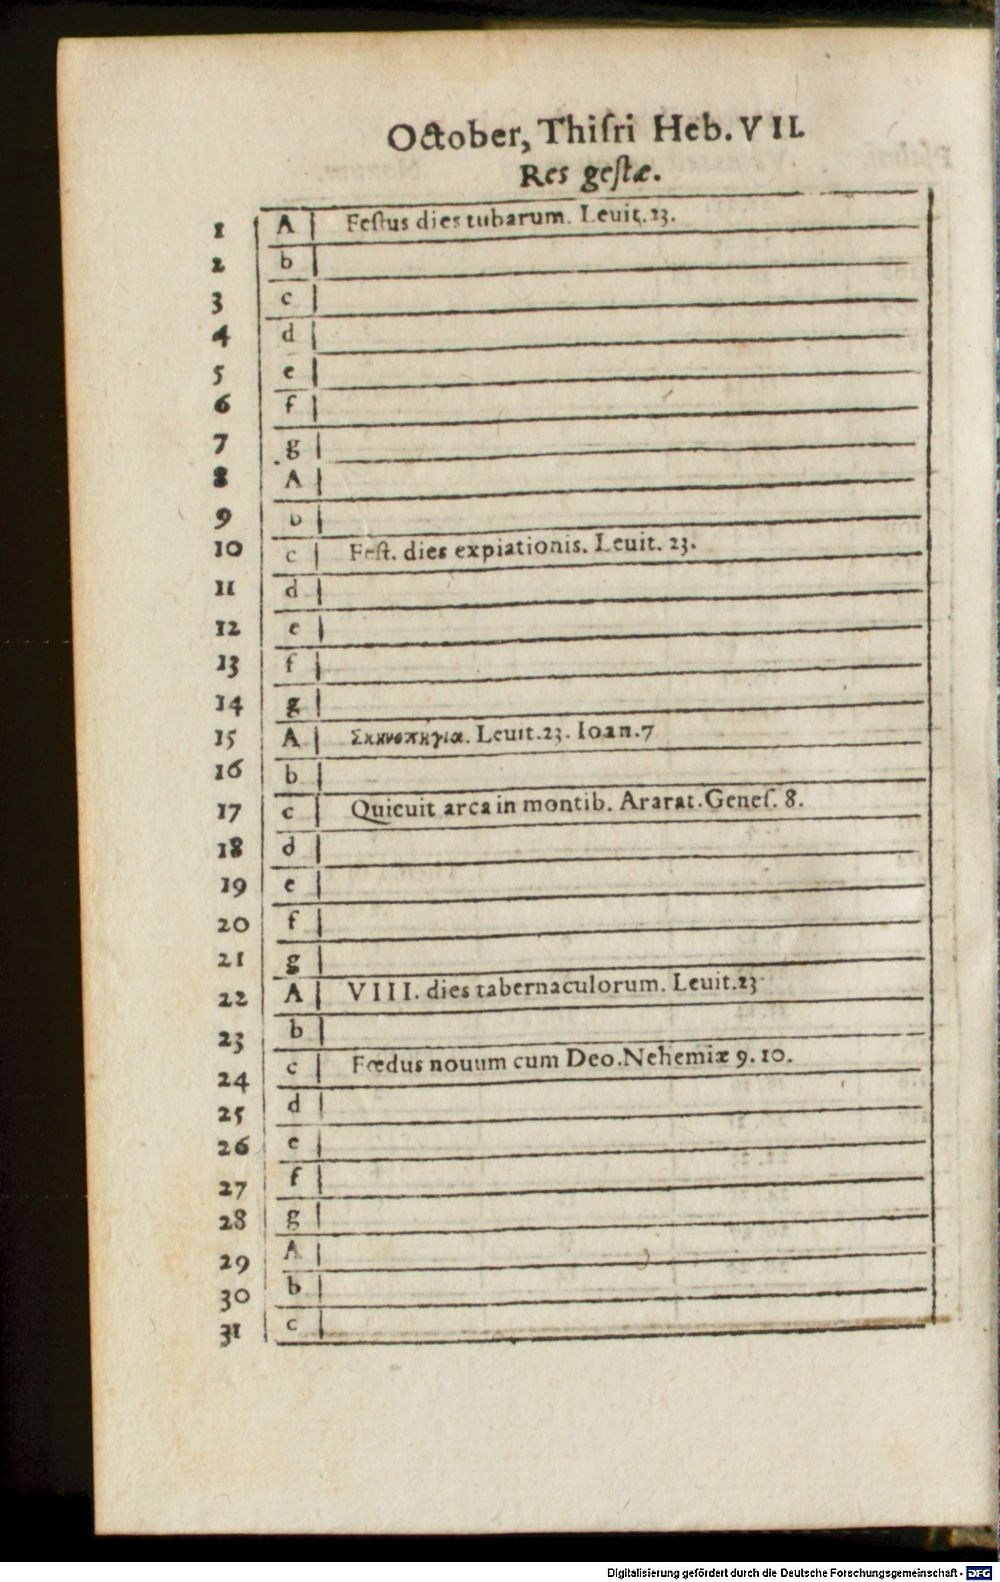 October, Thiſri Heb. VII.
Res geſtæ.
1 A Feſtus dies tubarum. Leuit. 23.
2 b
3 c
4 d
5 e
6 f
7 g
8 A
9 b
10 c Feſt. dies expiationis. Leuit. 23.
11 d
12 e
13 f
14 g
15 A Σκηνοπηγία. Leuit.23. Ioan.7
16 b
17 c Quieuit arca in montib. Ararat. Geneſ. 8.
18 d
19 e
20 f
21 g
22 A VIII. dies tabernaculorum. Leuit.23
23 b
24 c Fœdus nouum cum Deo. Nehemiæ 9. 10.
25 d
26 e
27 f
28 g
29 A
30 b
31 c
Digitalisierung gefördert durch die Deutsche Forschungsgemeinschaft - DFG